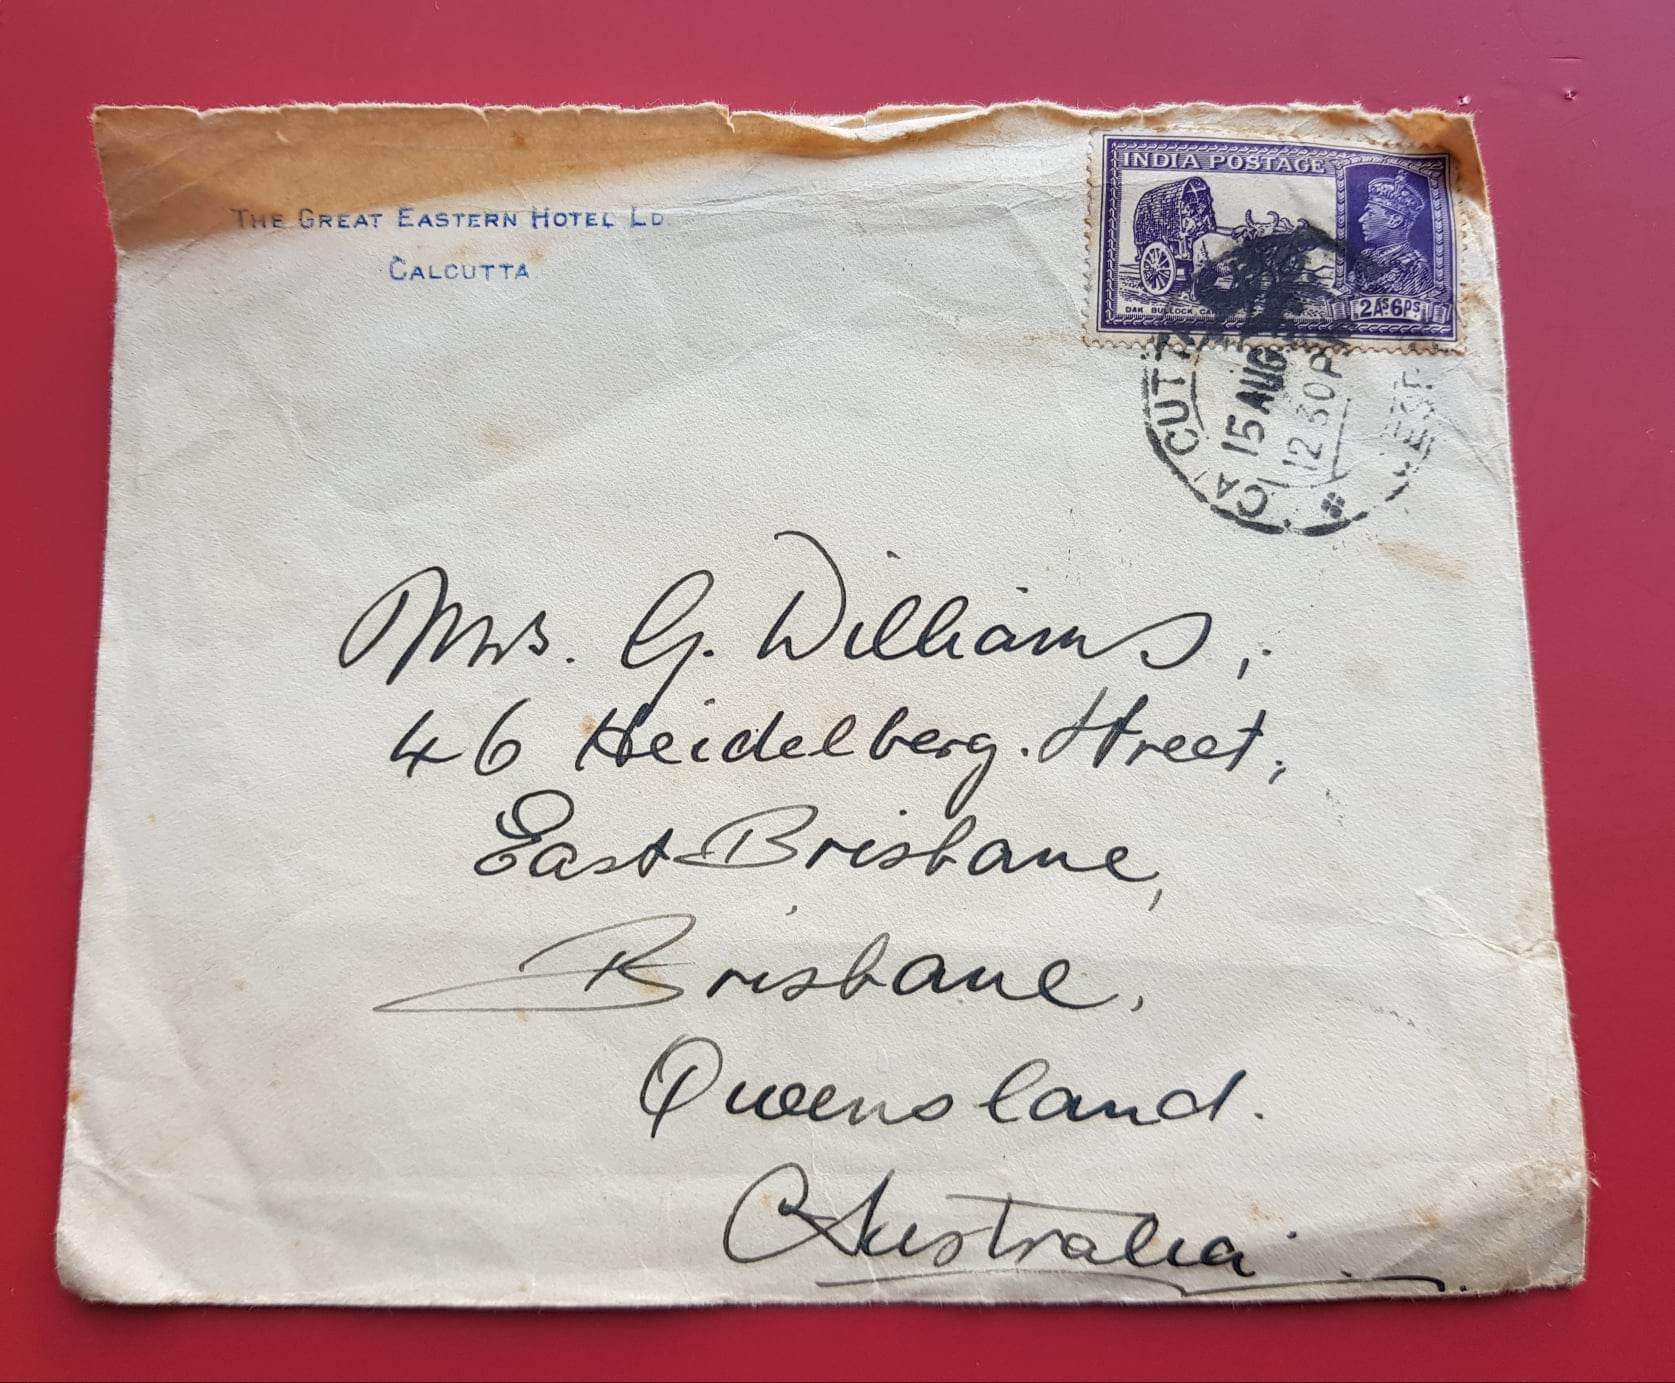 THE GREAT EASTERN HOTEL LD.
CALCUTTA
INDIA POSTAGE
DAK BULLOCK
2AS6PS
CALCUTTA
15 AUG
12 30 P
Mrs. G. Williams,
46 Heidelberg. Street,
East Brisbane,
Brisbane,
Queensland.
Australia